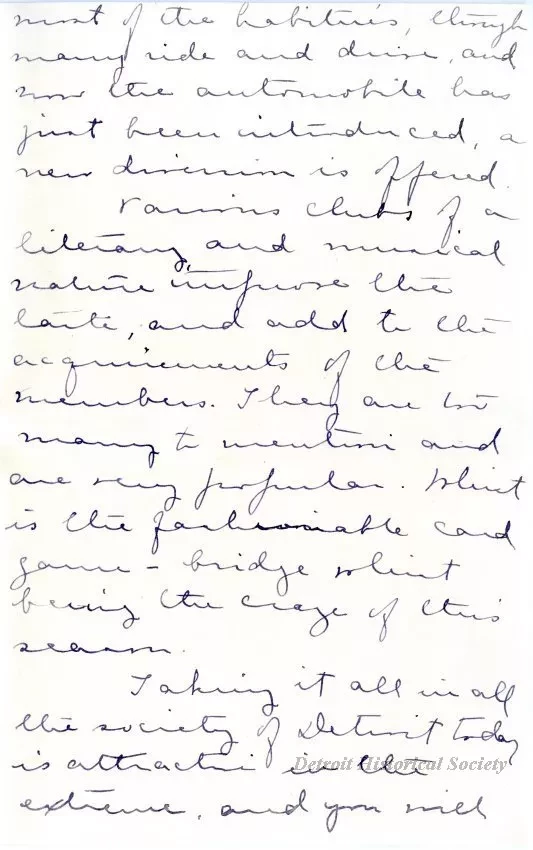 most of the habitués, though
many ride and drive, and
now the automobile has
just been introduced, a
new diversion is offered.
Various clubs of a
literary, and musical
nature improve the
taste, and add to the
acquirements of the
members. They are too
many to mention and
are very popular. Whist
is the fashionable card
game - bridge whist
being the craze of this
season.
Taking it all in all
the society of Detroit today
is attractive in the
Detroit Historical Society
extreme, and you will